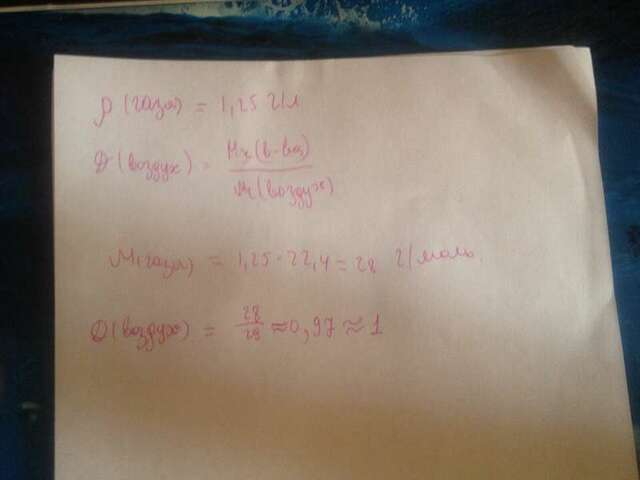 ρ(газа) = 1,25 г/л
D(воздух) = Mr(в-ва) / Mr(воздух)
M(газа) = 1,25 · 22,4 = 28 г/моль.
D(воздух) = 28/29 ≈ 0,97 ≈ 1